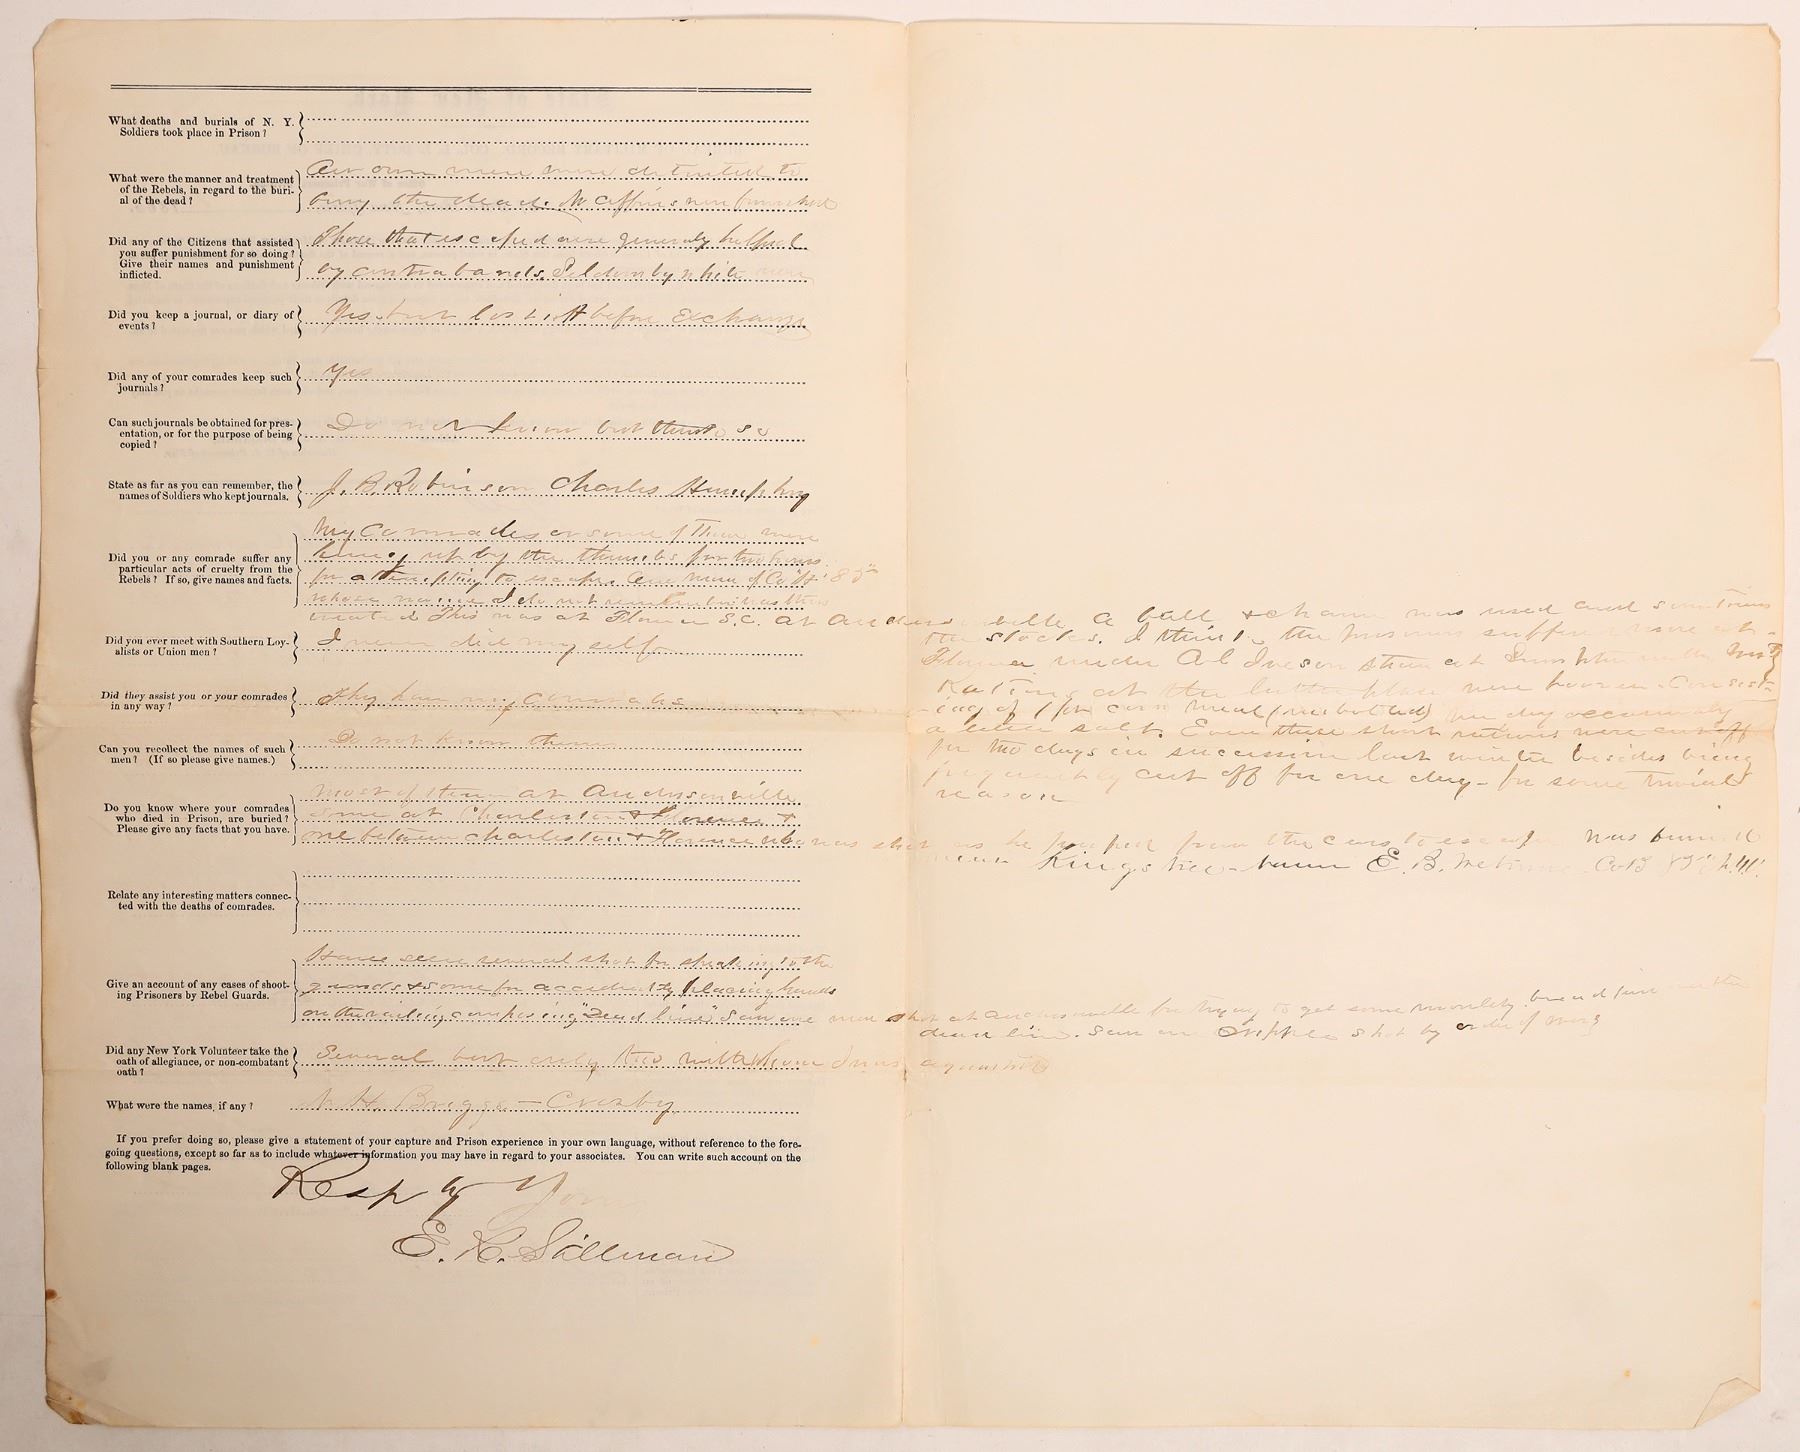 What deaths and burials of N. Y.
Soldiers took place in Prison?
What were the manner and treatment
of the Rebels, in regard to the buri-
al of the dead?
Our own men were detailed to
bury the dead. No coffins were furnished
Did any of the Citizens that assisted
you suffer punishment for so doing?
Give their names and punishment
inflicted.
Those that escaped were generaly helped
by contrabands. Seldom by white men
Did you keep a journal, or diary of
events?
Yes but lost it before Exchange
Did any of your comrades keep such
journals?
Yes
Can such journals be obtained for pres-
entation, or for the purpose of being
copied?
Do not know but think so
State as far as you can remember, the
names of Soldiers who kept journals.
J. B. Robinson Charles Humphrey
Did you or any comrade suffer any
particular acts of cruelty from the
Rebels? If so, give names and facts.
My Comrades or some of them were
hung up by the thumbs for two hours
for attempting to escape. One man of Co "H" 85th
whose name I do not remember was thus
treated This was at Florence S.C. At Andersonville a ball & chain was used and sometimes
the stocks. I think the prisoners suffered more at
Florence under Col Iverson than at under Wirz
Rations at the latter place were Consist-
ing of 1 pt corn meal (unbolted) per day occasionaly
a little salt. Even these short rations were cut off
for two days in succession last winter besides being
frequently cut off for one day - for some trivial
reason
Did you ever meet with Southern Loy-
alists or Union men?
I never did my self
Did they assist you or your comrades
in any way?
They have my comrades
Can you recollect the names of such
men? (If so please give names.)
Do not know them
Do you know where your comrades
who died in Prison, are buried?
Please give any facts that you have.
Most of them at Andersonville
some at Charleston & Florence &
one between Charleston & Florence who was shot as he jumped from the cars to escape was buried
near Kingstree - name E. B. Co B 85th N.Y.
Relate any interesting matters connec-
ted with the deaths of comrades.
Give an account of any cases of shoot-
ing Prisoners by Rebel Guards.
Have seen several shot for speaking to the
guards & some for accidently placing hands
on the railing composing "Dead line" Saw one man shot at Andersonville for trying to get some mouldy bread just the
dead line. Saw one cripple shot by order of Wirz
Did any New York Volunteer take the
oath of allegiance, or non-combatant
oath?
Several but only two with whom I was acquainted
What were the names, if any?
Briggs - Crosby
If you prefer doing so, please give a statement of your capture and Prison experience in your own language, without reference to the fore-
going questions, except so far as to include whatever information you may have in regard to your associates. You can write such account on the
following blank pages.
Resp ly Yours
E. K. Stillman